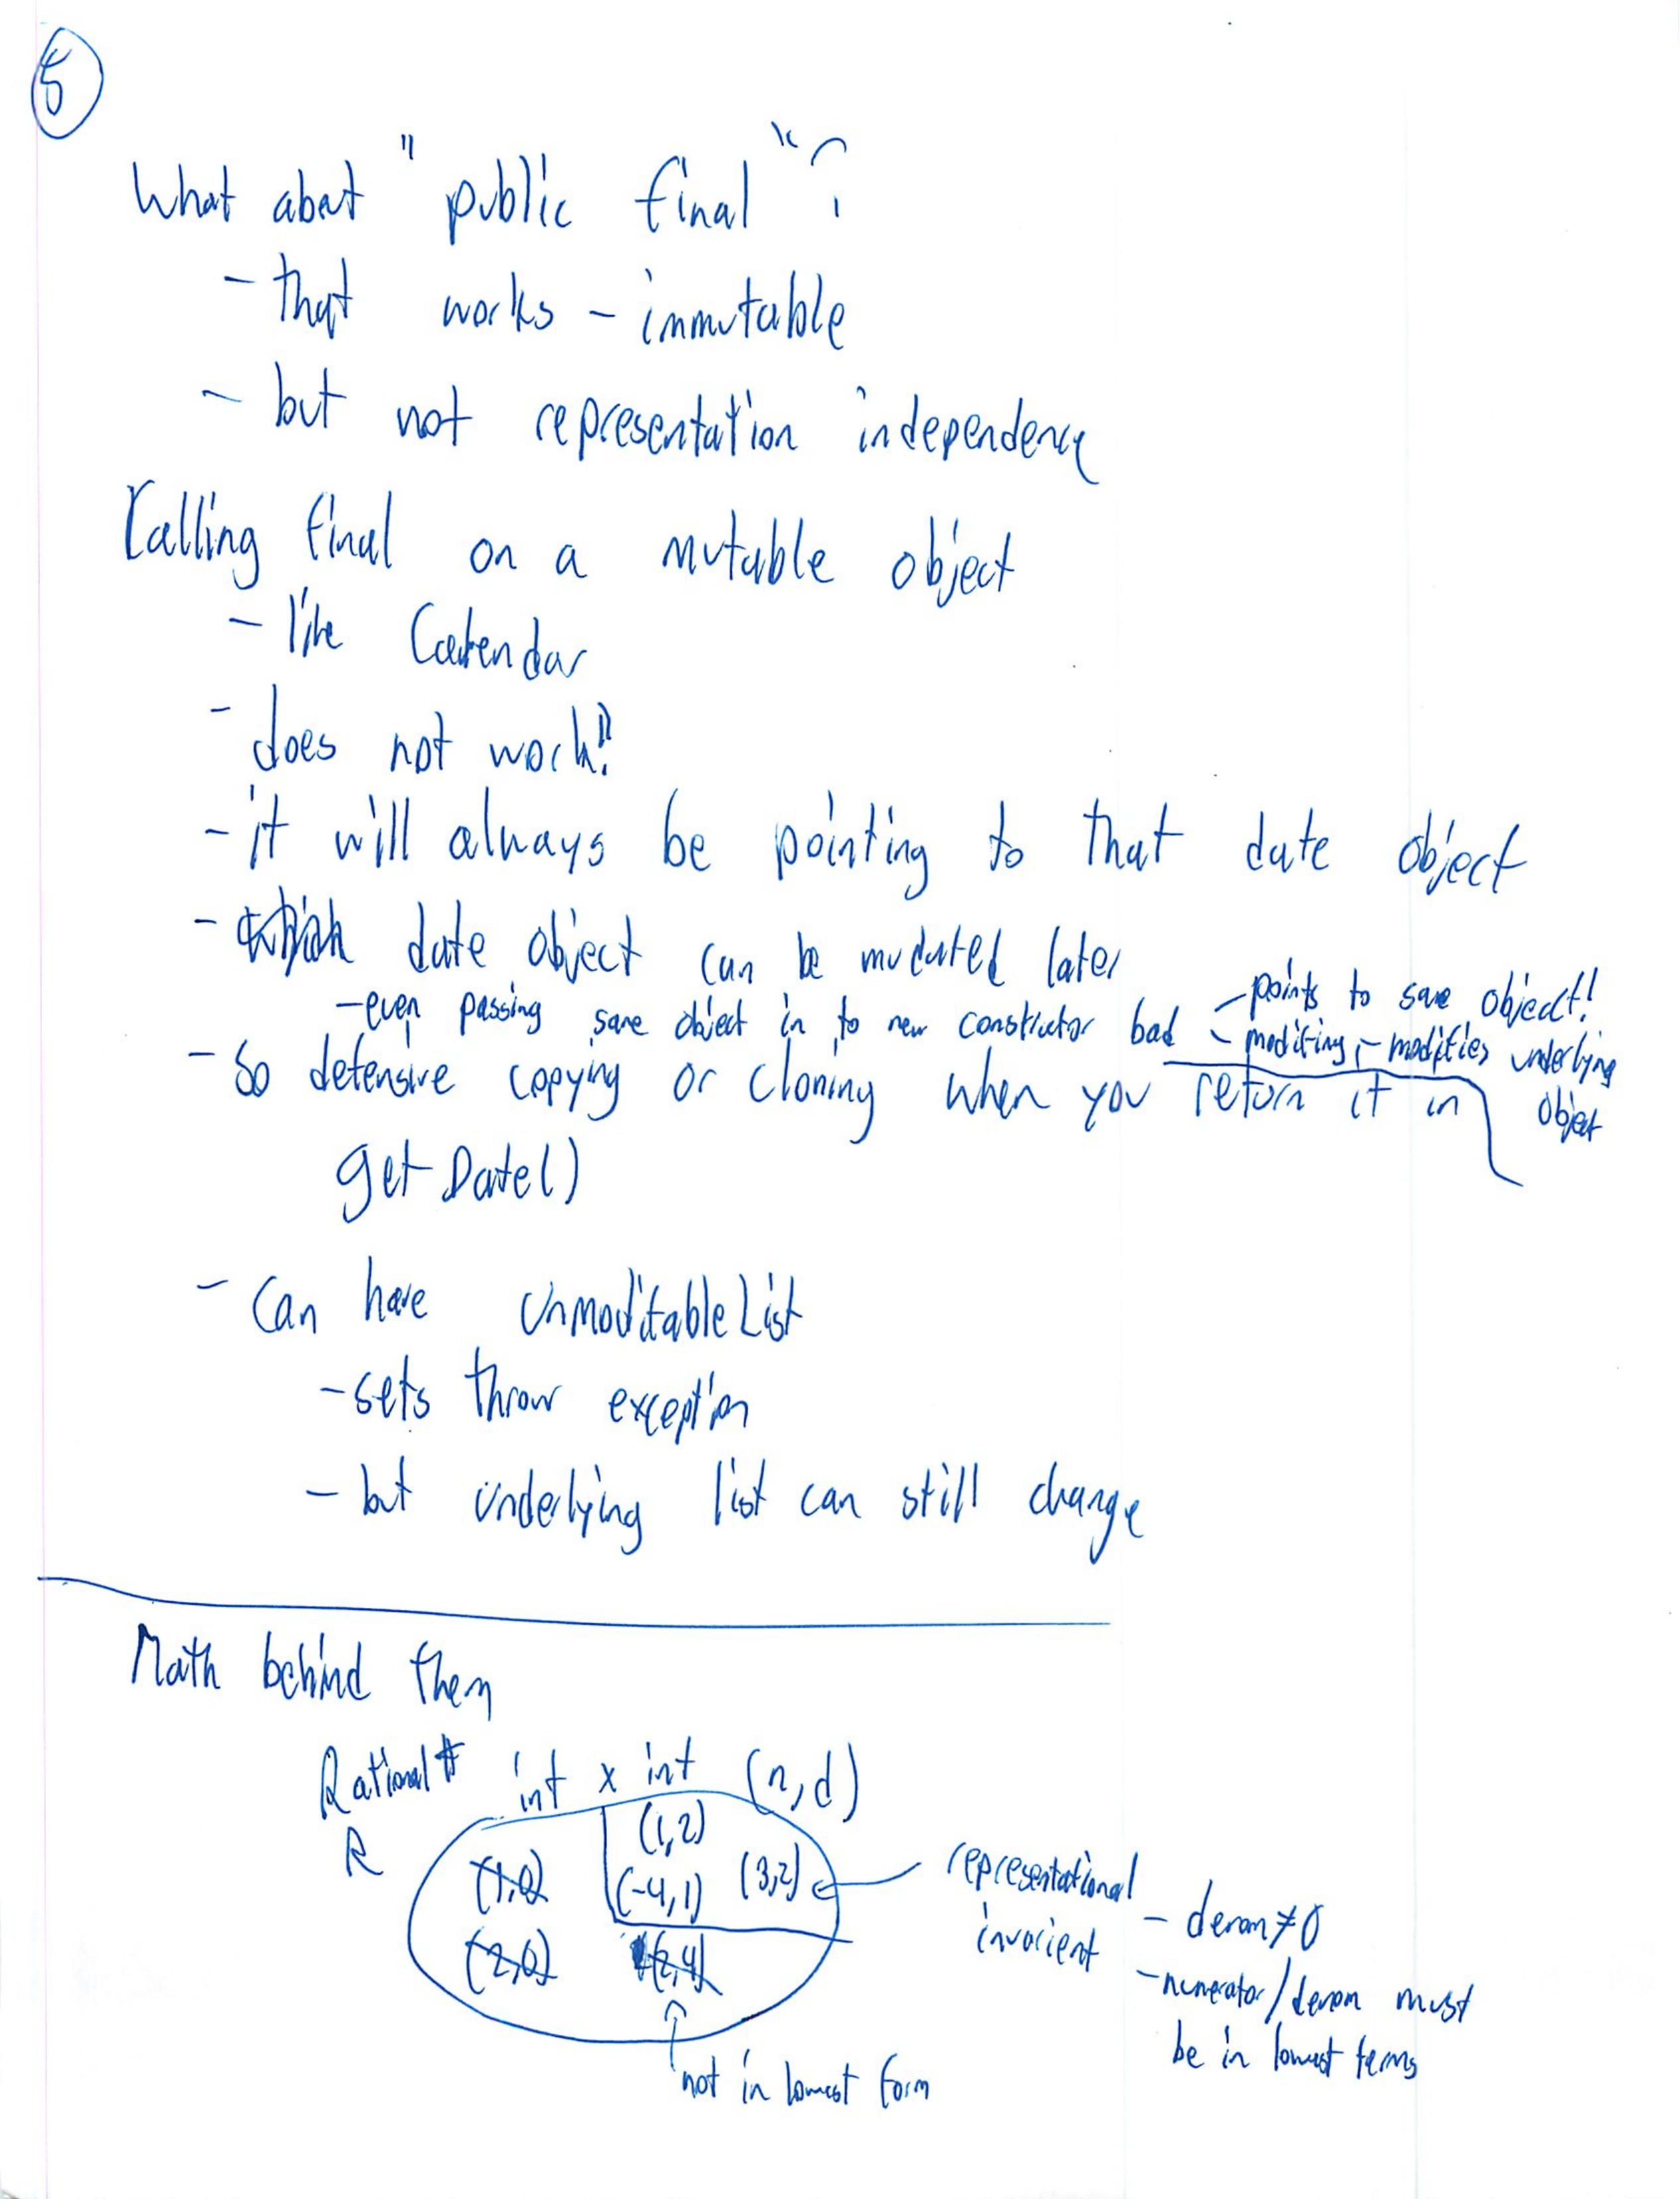 5
What about "public final"?
- that works - immutable
- but not representation independency
Calling final on a mutable object
- like Calendar
- does not work!!
- it will always be pointing to that date object
- which date object can be mutated later
- even passing same object in to new constructor bad
- points to same object!!
- modifing - modifies underlying object
- So defensive copying or cloning when you return it in
get Date()
- Can have UnmodifableList
- sets throw exception
- but underlying list can still change
Math behind them
Rational # int x int (n,d)
R
(1,2)
(1,0) (-4,1) (3,2)
(2,0) (2,4)
not in lowest form
representational
invarient
- denom ≠ 0
- numerator/denom must
be in lowest terms